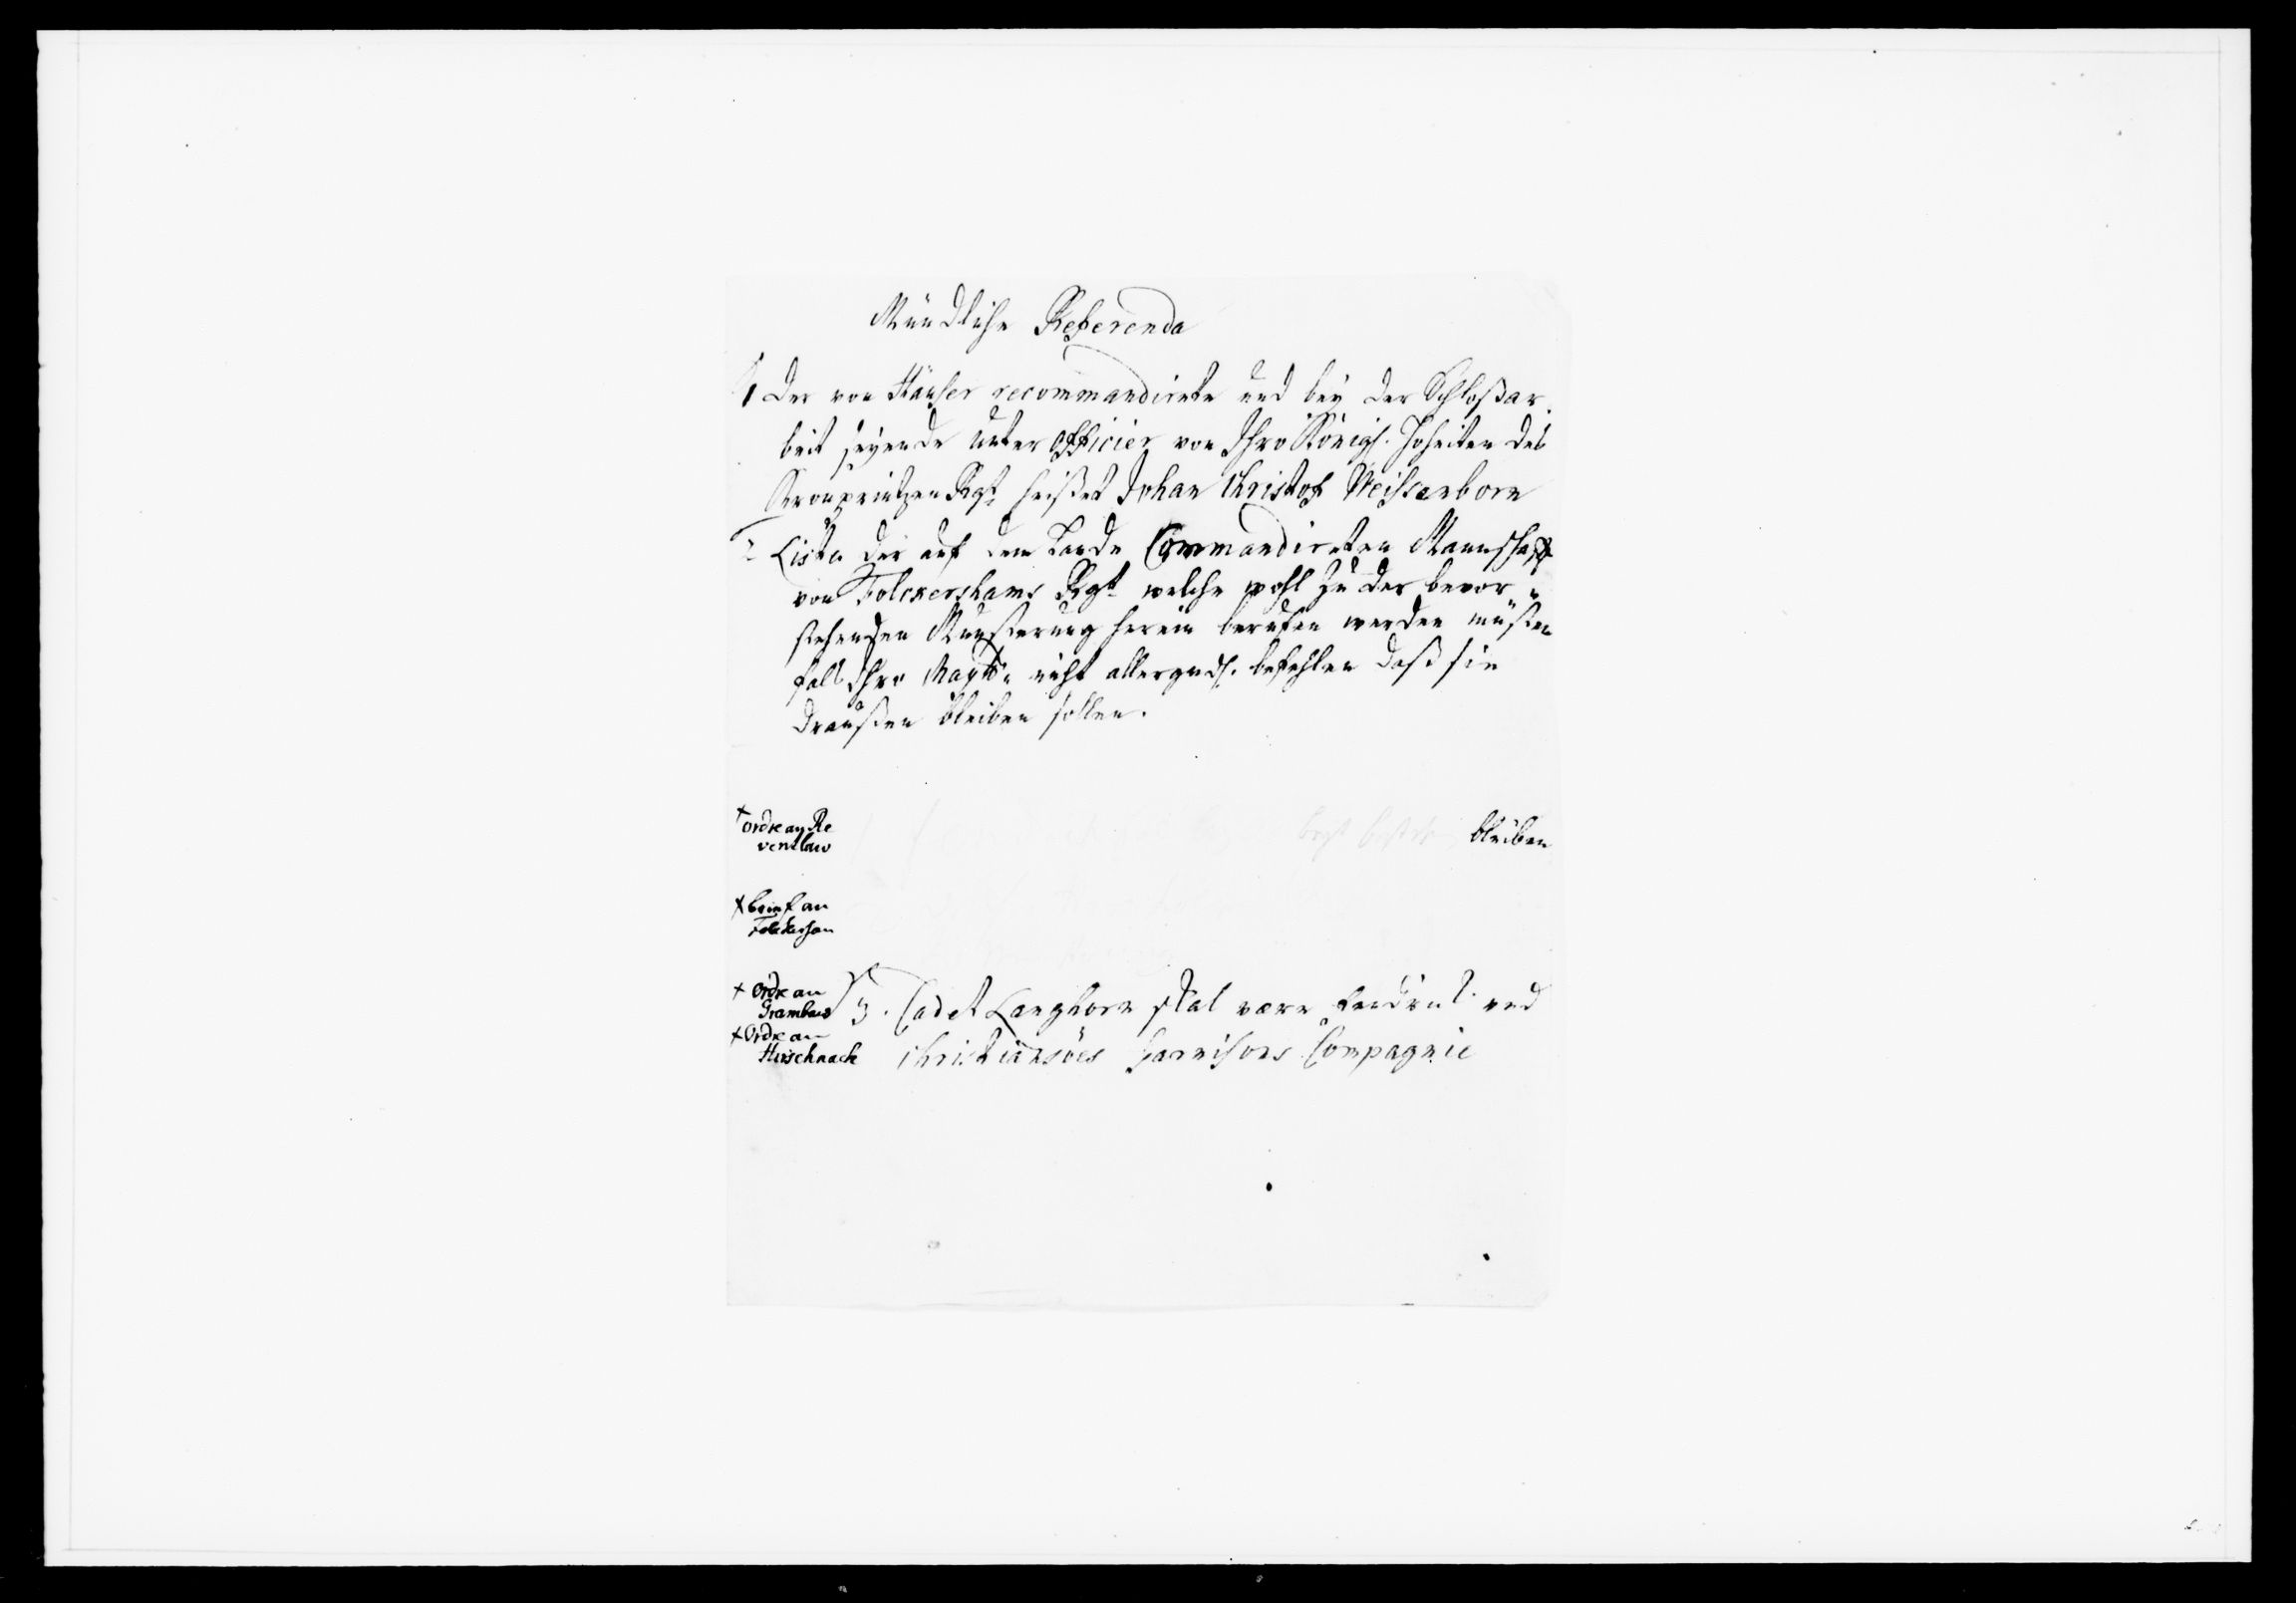 Mündliche Referenda
1 Der von Häuser recommandirte und bey der Schloßar-
beit seyende unter Officier von Ihro Königl. Hoheiten des
Kronprintzen Rgt. heißet Johan Christof Weissenborn
2 Lista der auf dem Lande Commandirten Mannschafft
von Folckershams Rgt. welche wohl zu der bevor-
stehenden Munsterung herein berufen werden müßen
fals Ihro Maytt. nicht allergndl. befehlen daß sie
draußen bleiben sollen.
+ ordre an Re
ventlau
bleiben
+ brief an
Folckersham
+ Ordre an
Grambau
3. Cadet Langhorn skal være Fendrich ved
+ Ordre an
Hirschnach
Christiansöes Garnisons Compagnie